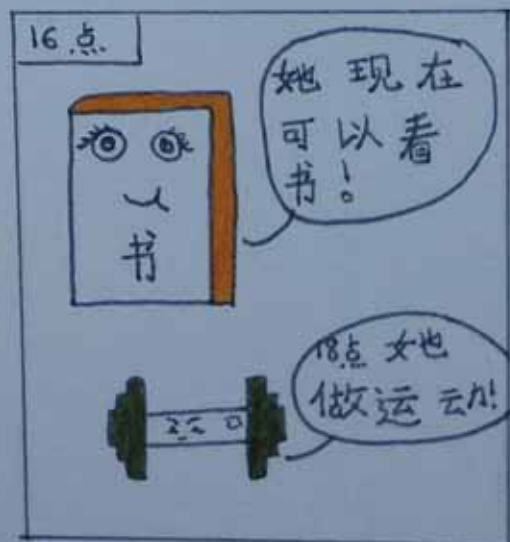 16点
她现在
可以看
书！
书
18点 她
做运动！